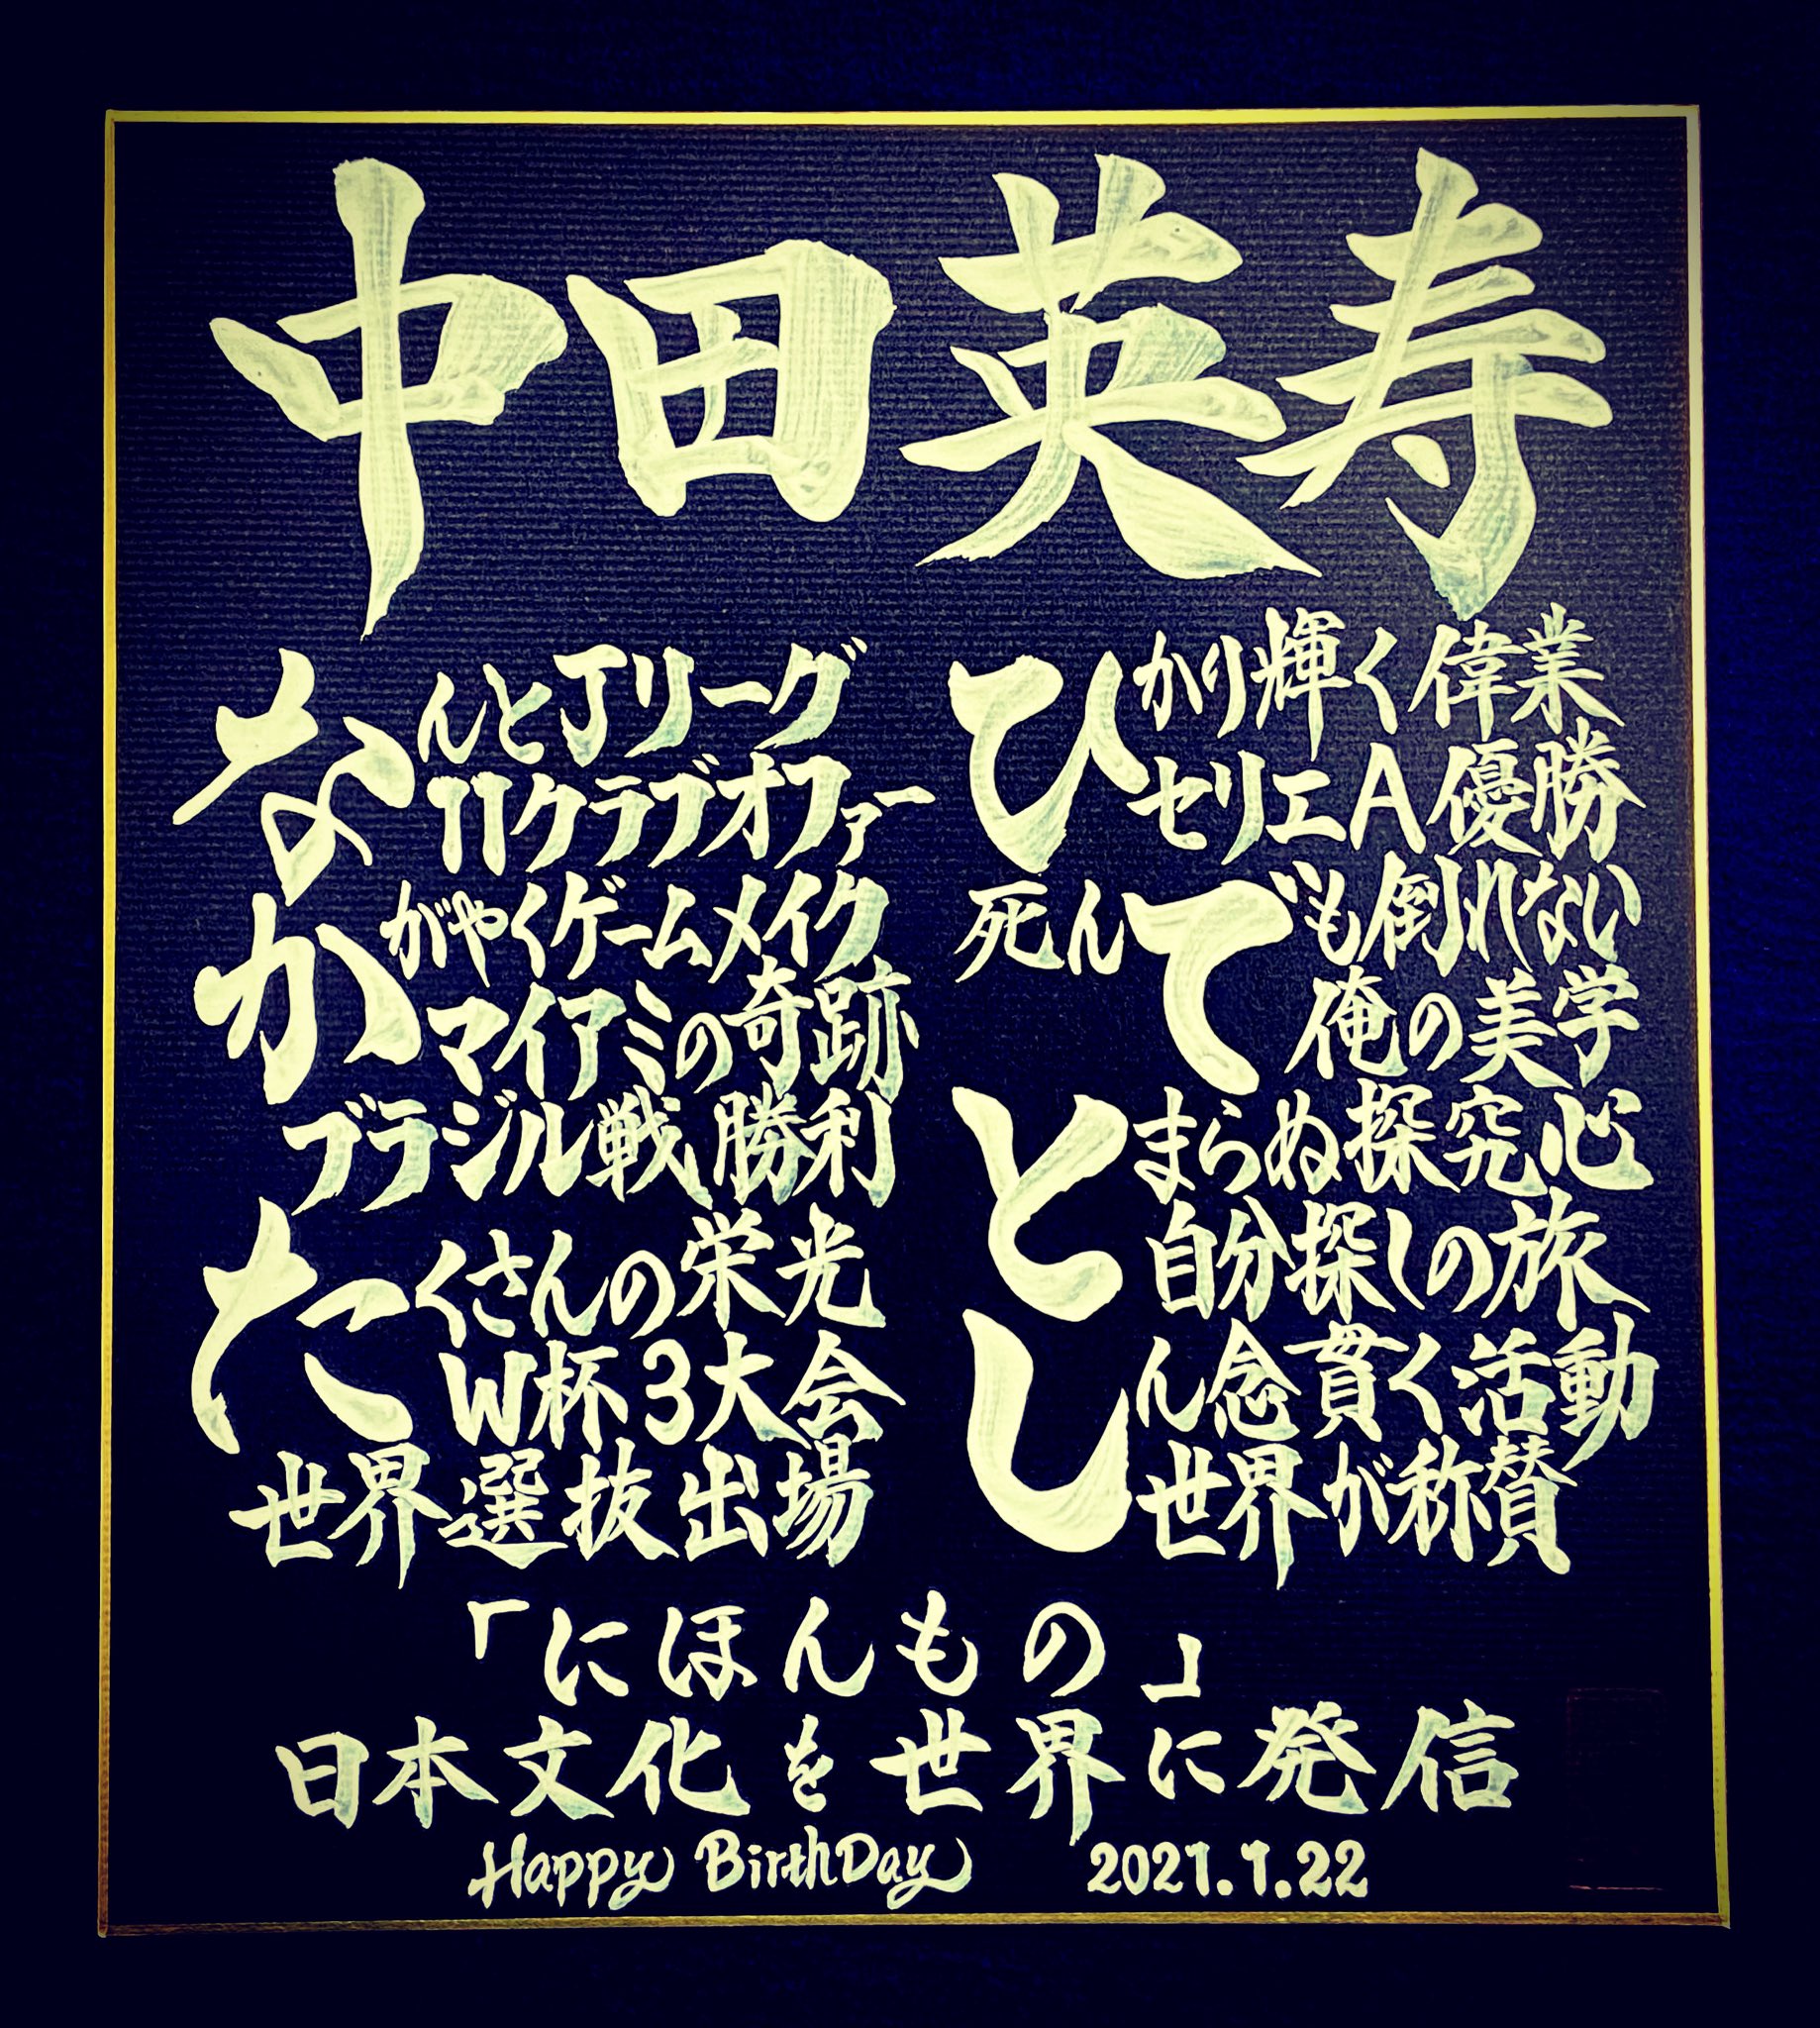 中田英寿
なんとJリーグ
11クラブオファー
かがやくゲームメイク
マイアミの奇跡
ブラジル戦勝利
たくさんの栄光
W杯3大会
世界選抜出場
ひかり輝く偉業
セリエA優勝
死んでも倒れない
俺の美学
とまらぬ探究心
自分探しの旅
しん念貫く活動
世界が称賛
「にほんもの」
日本文化を世界に発信
Happy BirthDay 2021.1.22